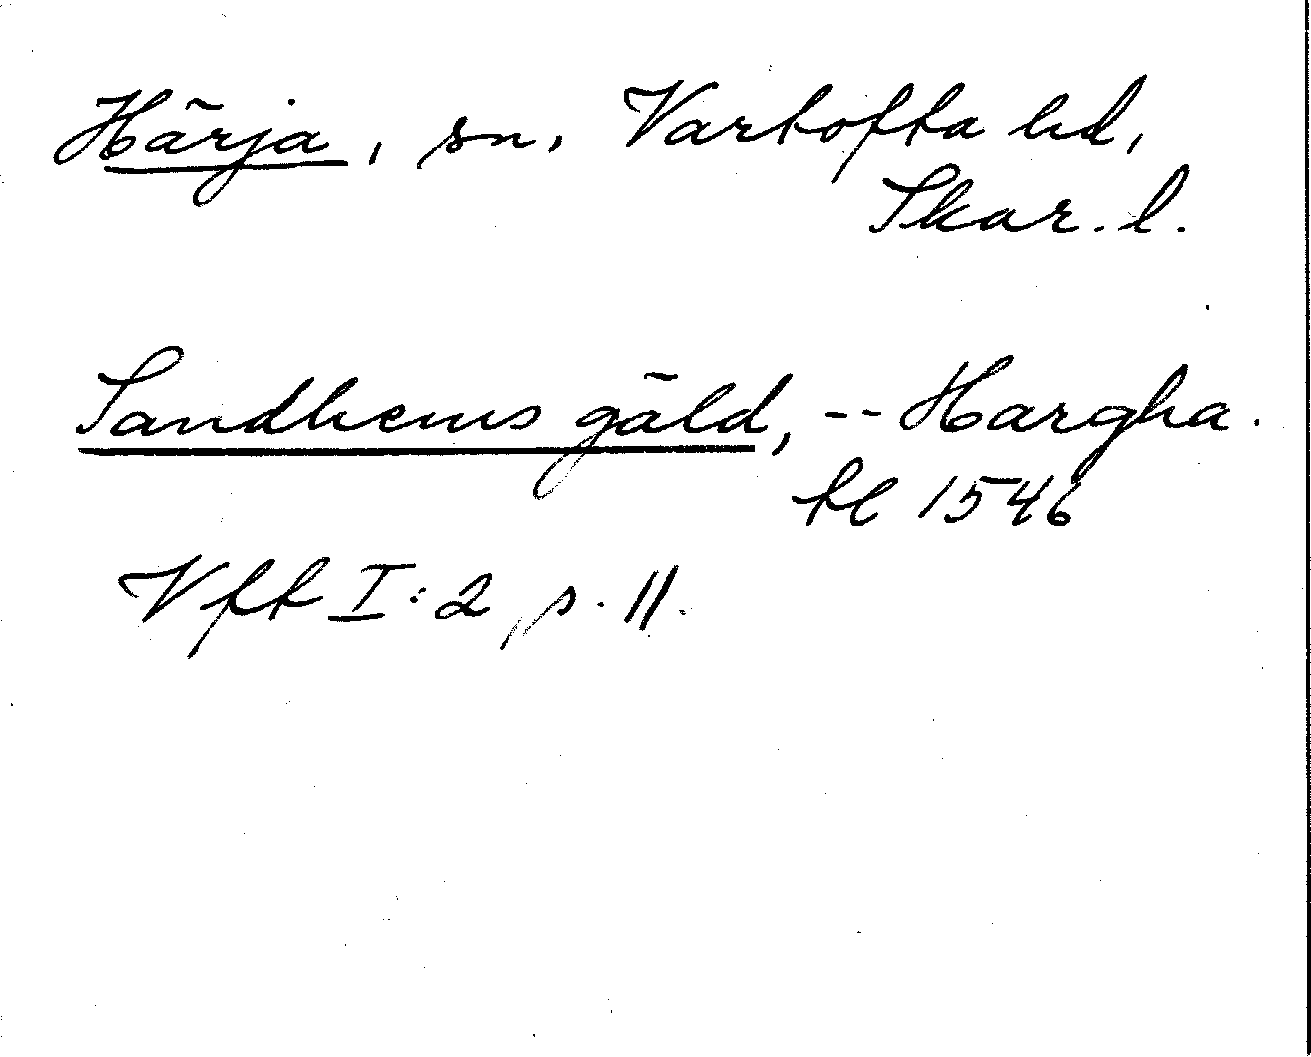 Härja, sn, Vartofta hd,
Skar. l.
Sandhems gäld, -- Hargha.
tl 1546
Vft I:2 p. 11.